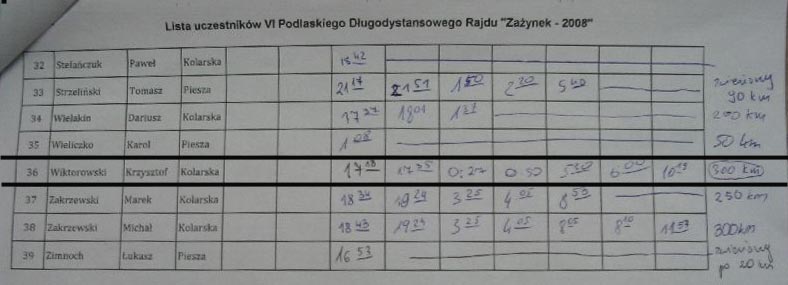 Lista uczestników VI Podlaskiego Długodystansowego Rajdu "Zażynek - 2008"
32 Stefańczuk Paweł Kolarska 18 42
33 Strzeliński Tomasz Piesza 21 17 21 51 1 50 2 20 5 40 90 km
34 Wielakin Dariusz Kolarska 17 37 18 01 1 37 200 km
35 Wieliczko Karol Piesza 1 08 50 km
36 Wiktorowski Krzysztof Kolarska 17 18 17 35 0:27 0 50 5 30 6 00 10 19 300 km
37 Zakrzewski Marek Kolarska 18 34 19 24 3 25 4 05 8 59 250 km
38 Zakrzewski Michał Kolarska 18 43 19 24 3 25 4 05 8 05 8 10 11 57 300 km
39 Zimnoch Łukasz Piesza 16 53
po 20 km